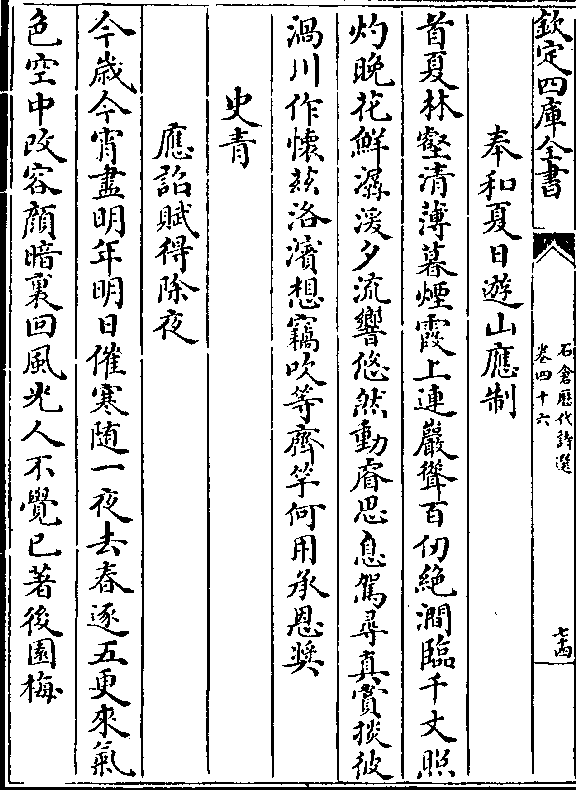 欽定四庫全書
石倉歷代詩選
卷四十六
七十四
奉和夏日遊山應制
首夏林壑清薄暮煙霞上連巖聳百仞絶澗臨千丈照
灼晚花鮮潺湲夕流響悠然動睿思息駕尋真賞掞彼
渦川作懷兹洛濱想竊吹等齊竽何用承恩奬
史青
應詔賦得除夜
今歳今宵盡明年明日催寒随一夜去春逐五更來氣
色空中改容顔暗裏回風光人不覺已著後園梅